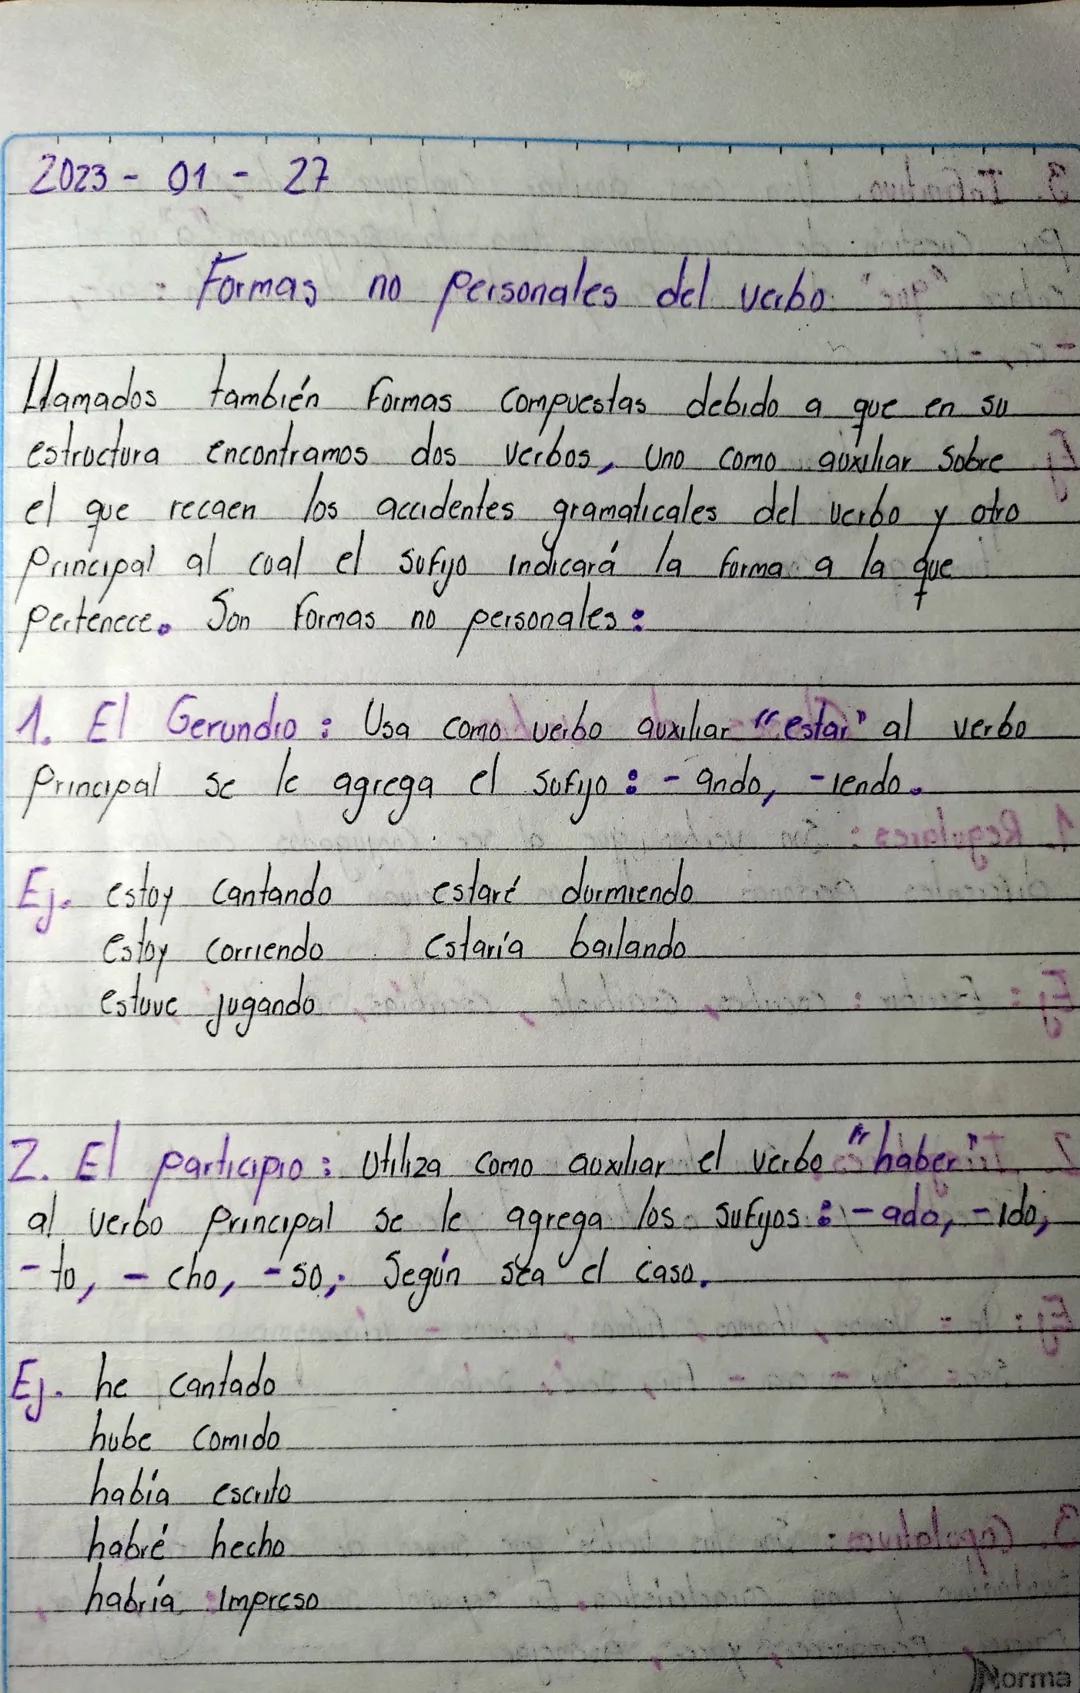 2023 - 01 - 27
Formas no personales del verbo
Llamados también formas compuestas debido a que en su
estructura encontramos dos verbos, Uno como auxiliar sobre
el que recaen los accidentes gramaticales del verbo y otro
principal al cual el sufijo indicará la forma a la que
pertenece. Son formas no personales:
1. El Gerundio: Usa como verbo auxiliar "estar" al verbo
principal se le agrega el sufijo: -ando, -iendo.
Ej. estoy cantando estaré durmiendo
estoy corriendo estaría bailando
estuve jugando
2. El participio: Utiliza como auxiliar el verbo "haber"
al verbo principal se le agrega los sufijos: -ado, -ido,
-to, -cho, -so, Según sea el caso.
Ej. he cantado
hube comido
había escrito
habré hecho
habría impreso
Norma